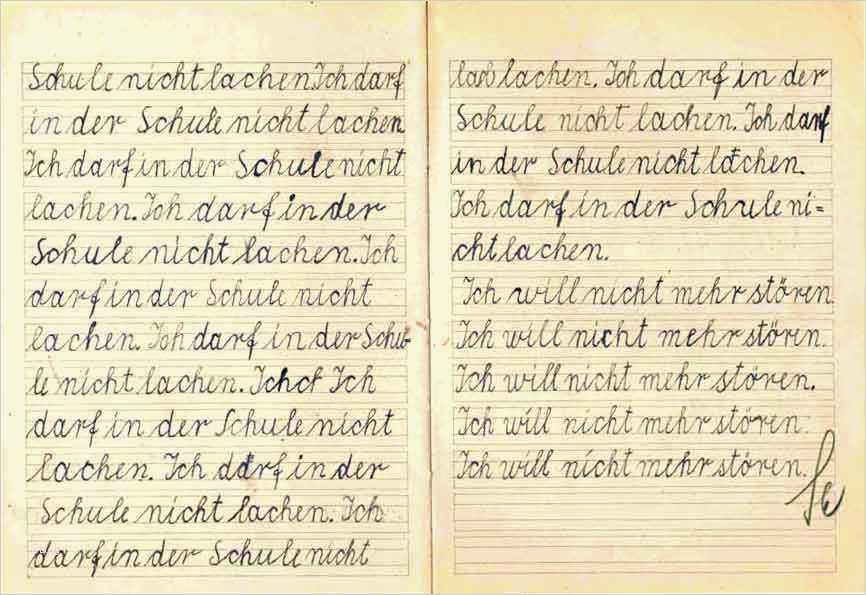 Schule nicht lachen. Ich darf
in der Schule nicht lachen
Ich darf in der Schule nicht
lachen. Ich darf in der
Schule nicht lachen. Ich
darf in der Schule nicht
lachen. Ich darf in der Schu-
le nicht lachen. Ichd Ich
darf in der Schule nicht
lachen. Ich darf in der
Schule nicht lachen. Ich
darf in der Schule nicht
lachen. Ich darf in der
Schule nicht lachen. Ich darf
in der Schule nicht lachen.
Ich darf in der Schule ni=
cht lachen.
Ich will nicht mehr stören
Ich will nicht mehr stören.
Ich will nicht mehr stören.
Ich will nicht mehr stören.
Ich will nicht mehr stören.